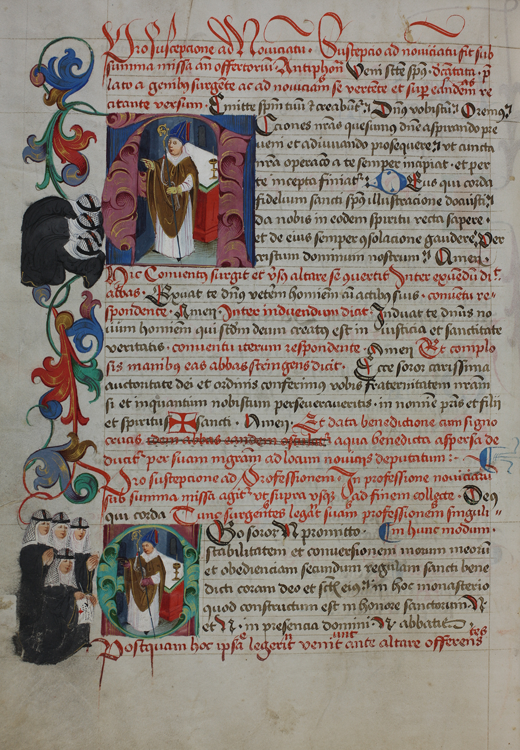 Pro susceptione ad Noviciatū · Susceptio ad noviciatū fit sub
summa missa añ offertoriū · Antiphoñ Veni sc̄te sp̄us · Dc̄antata · p̄
lato a genibus surgēte ac ad noviciam se vertēte et sup̄ eandem re
citante versum · Emitte sp̄m tuū ⁊ creabunt᷑ · Dn̄us vobiscū · Oremus
Actiones nr̄as quesumus dn̄e aspirando pre
veni et adiuvando prosequere · vt cuncta
nr̄a operatio a te semper incipiat · et per
te incepta finiat᷑ · Deus qui corda
fidelium sancti sp̄us illustratione docuisti ·
da nobis in eodem spiritu recta sapere ·
et de eius semper 9solatione gaudere · Per
cristum dominum nostrum · Amen ·
Hic Conventus surgit et v̄sus altare se quertit · Inter exuendū dic̄
abbas · Exuat te dn̄us vetēm hominē cū actibus suis · conventu re-
spondente · Amen · Inter induendum dicit · Induat te dn̄us no
uum hominem qui scdm̄ deum creatus est in iusticia et sanctitate
veritatis · conventu iterum respondente · Amen · Et complo
sis manibus eas abbas stringens dicit · Ecce soror carissima
auctoritate dei et ordinis conferimus vobis fraternitatem nr̄am
si et inquantum nobiscum perseveraveritis · in nomine pr̄is et filii
et spiritus ✠ sancti · Amen · Et data benedictione cum signo
crucis · idem abbas eandem et aqua benedicta aspersa de
ducit᷑ per suam mgr̄am ad locum noviciis deputatum :·
Pro susceptione ad Professionem · In professione noviciatū
sub summa missa agit᷑ vt supra vsque ad finem collecte · Deus
qui corda Tunc surgentes legat᷑ suam professionem singuli-
Ego soror N promitto · In hunc modum ·
stabilitatem et conversionem morum meorū
et obedienciam secundum regulam sancti bene
dicti coram deo et sc̄tis eius in hoc monasterio
quod constructum est in honore sanctorum N
et N · in presencia domini N abbatis
Postquam hoc ipsa legerit venit ante altare offerens
unt
tes